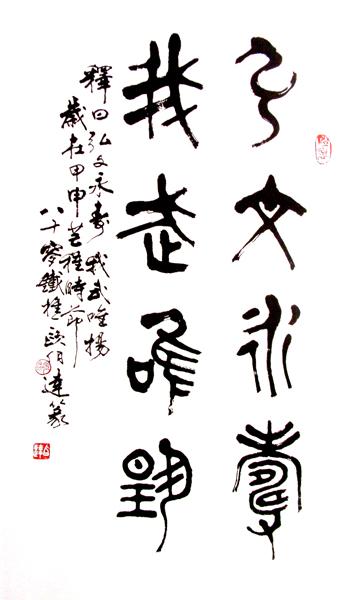 弘文永壽
我武唯揚
釋曰弘文永壽我武唯揚
歲在甲申芒種時節
八十零鐵捶歐伯達篆